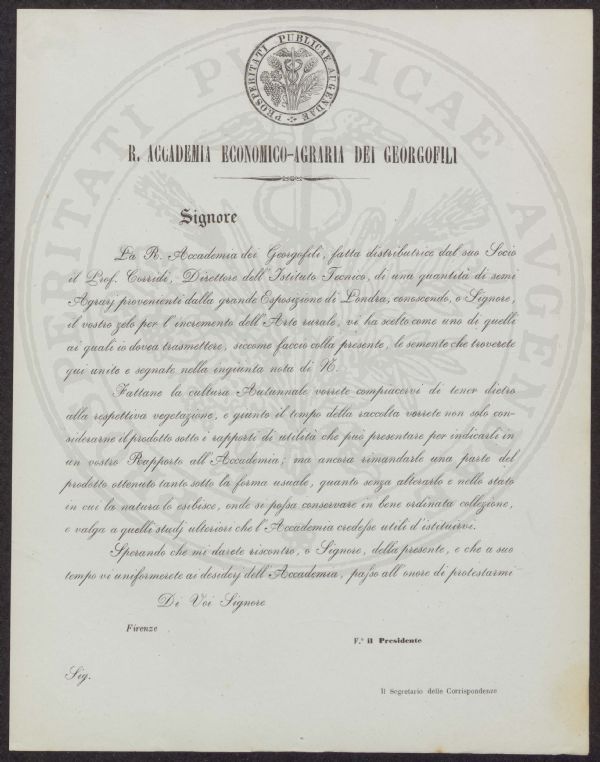 PROSPERITATI PUBLICAE AUGENDAE
R. ACCADEMIA ECONOMICO-AGRARIA DEI GEORGOFILI
Signore
La R. Accademia dei Georgofili, fatta distributrice dal suo Socio
il Prof. Corridi, Direttore dell'Istituto Tecnico, di una quantità di semi
Agrarj provenienti dalla grande Esposizione di Londra, conoscendo, o Signore,
il vostro zelo per l'incremento dell'Arte rurale, vi ha scelto come uno di quelli
ai quali io dovea trasmettere, siccome faccio colla presente, le semente che troverete
qui unite e segnate nella ingiunta nota di N.
Fattane la cultura Autunnale vorrete compiacervi di tener dietro
alla respettiva vegetazione, e giunto il tempo della raccolta vorrete non solo con-
siderarne il prodotto sotto i rapporti di utilità che può presentare per indicarli in
un vostro Rapporto all'Accademia; ma ancora rimandarle una parte del
prodotto ottenuto tanto sotto la forma usuale, quanto senza alterarlo e nello stato
in cui la natura lo esibisce, onde si possa conservare in bene ordinata collezione,
e valga a quelli studj ulteriori che l'Accademia credesse utili d'istituirvi.
Sperando che mi darete riscontro, o Signore, della presente, e che a suo
tempo vi uniformerete ai desiderj dell'Accademia, passo all'onore di protestarmi
Di Voi Signore
Firenze
F.º il Presidente
Sig.
Il Segretario delle Corrispondenze